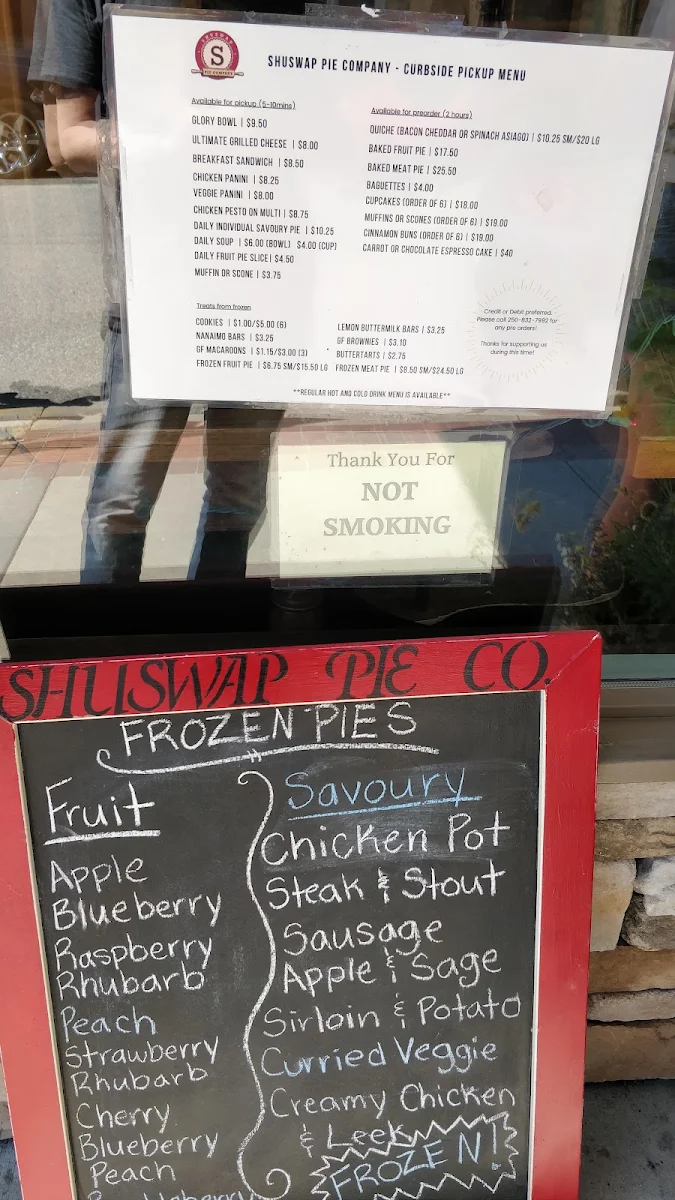 SHUSWAP
S
PIE COMPANY
SHUSWAP PIE COMPANY - CURBSIDE PICKUP MENU
Available for pickup (5-10mins)
GLORY BOWL | $9.50
ULTIMATE GRILLED CHEESE | $8.00
BREAKFAST SANDWICH | $8.50
CHICKEN PANINI | $8.25
VEGGIE PANINI | $8.00
CHICKEN PESTO ON MULTI | $8.75
DAILY INDIVIDUAL SAVOURY PIE | $10.25
DAILY SOUP | $6.00 (BOWL) $4.00 (CUP)
DAILY FRUIT PIE SLICE | $4.50
MUFFIN OR SCONE | $3.75
Available for preorder (2 hours)
QUICHE (BACON CHEDDAR OR SPINACH ASIAGO) | $10.25 SM/$20 LG
BAKED FRUIT PIE | $17.50
BAKED MEAT PIE | $25.50
BAGUETTES | $4.00
CUPCAKES (ORDER OF 6) | $18.00
MUFFINS OR SCONES (ORDER OF 6) | $19.00
CINNAMON BUNS (ORDER OF 6) | $19.00
CARROT OR CHOCOLATE ESPRESSO CAKE | $40
Treats from frozen
COOKIES | $1.00/$5.00 (6)
NANAIMO BARS | $3.25
GF MACAROONS | $1.15/$3.00 (3)
FROZEN FRUIT PIE | $6.75 SM/$15.50 LG
LEMON BUTTERMILK BARS | $3.25
GF BROWNIES | $3.10
BUTTERTARTS | $2.75
FROZEN MEAT PIE | $8.50 SM/$24.50 LG
Credit or Debit preferred.
Please call 250-832-7992 for
any pre orders!
Thanks for supporting us
during this time!
**REGULAR HOT AND COLD DRINK MENU IS AVAILABLE**
Thank You For
NOT
SMOKING
SHUSWAP PIE CO.
FROZEN PIES
Fruit
Apple
Blueberry
Raspberry
Rhubarb
Peach
Strawberry
Rhubarb
Cherry
Blueberry
Peach
Savoury
Chicken Pot
Steak & Stout
Sausage
Apple & Sage
Sirloin & Potato
Curried Veggie
Creamy Chicken
& Leek
FROZEN!